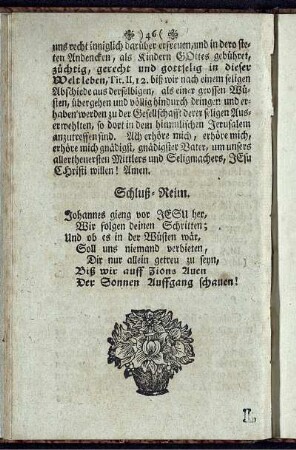 )46(
uns recht inniglich darüber erfreuen, und in dero ste-
ten Andencken, als Kindern GOttes gebühret,
züchtig, gerecht und gottselig in dieser
Welt leben, Tit. II, 12. biß wir nach einem seligen
Abschiede aus derselbigen, als einer grossen Wü-
sten, übergehen und völlig hindurch dringen und er-
haben werden zu der Gesellschafft derer seligen Aus-
erwehlten, so dort in dem himmlischen Jerusalem
anzutreffen sind. Ach erhöre mich, erhöre mich,
erhöre mich gnädigst, gnädigster Vater, um unsers
allertheuersten Mittlers und Seligmachers, JEsu
CHristi willen! Amen.
Schluß-Reim.
Johannes gieng vor JESU her,
Wir folgen deinen Schritten;
Und ob es in der Wüsten wär,
Soll uns niemand verbieten,
Dir nur allein getreu zu seyn,
Biß wir auff Zions Auen
Der Sonnen Auffgang schauen!